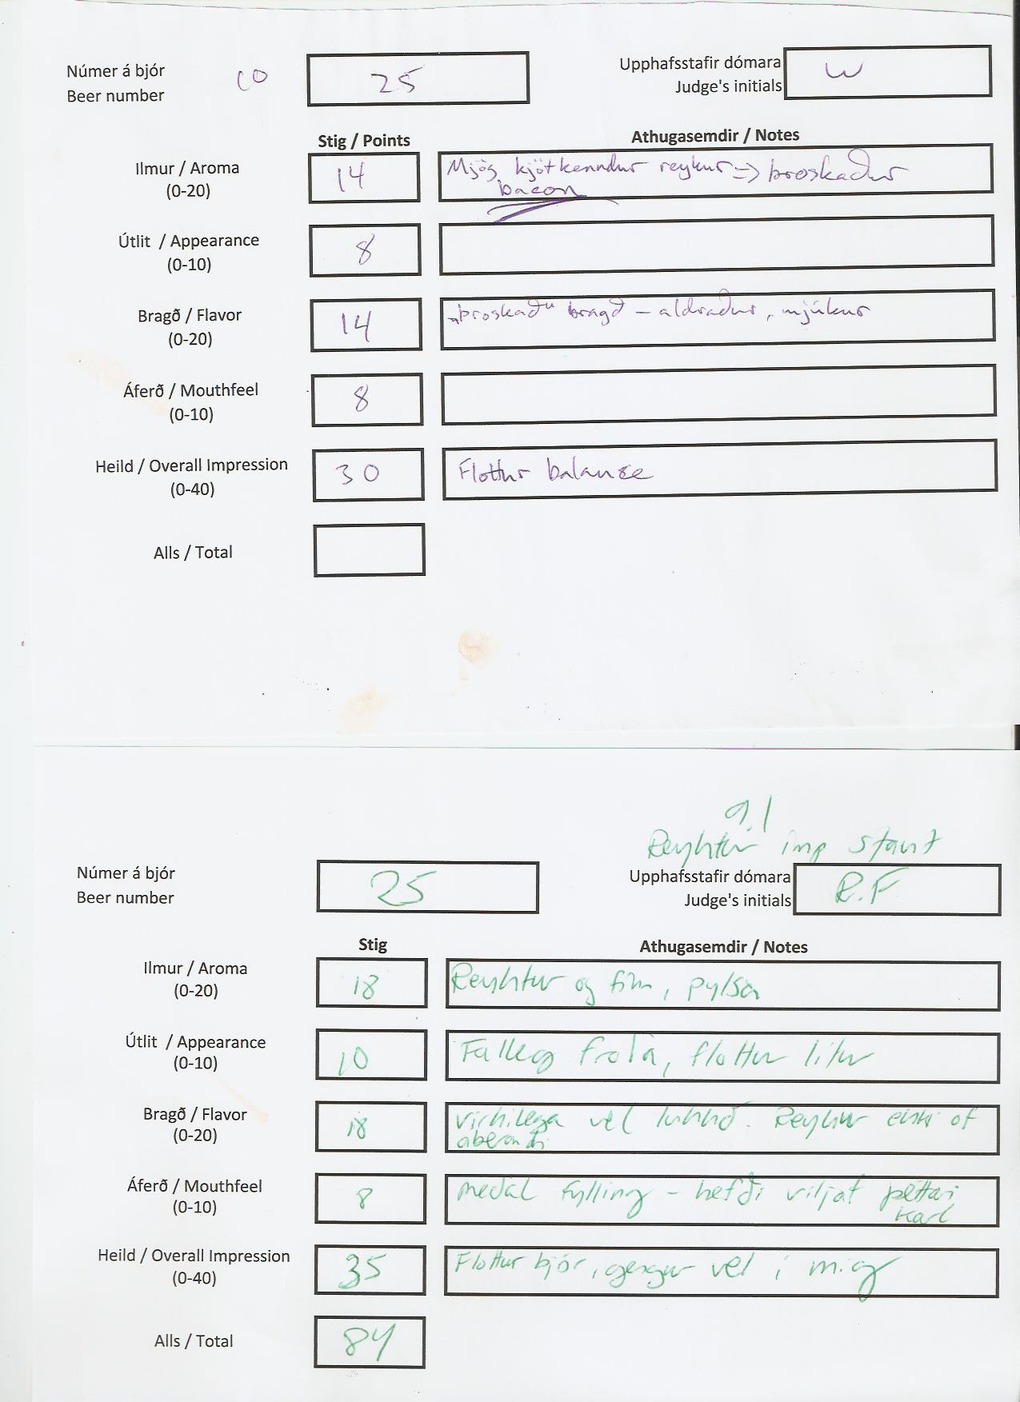 Númer á bjór
Beer number
10
25
Upphafsstafir dómara
Judge's initials
W
Stig / Points
Athugasemdir / Notes
Ilmur / Aroma
(0-20)
14
Mjög kjötkenndur reykur => þroskaður
bacon
Útlit / Appearance
(0-10)
8
Bragð / Flavor
(0-20)
14
„þroskað“ bragð - aldraður, mjúkur
Áferð / Mouthfeel
(0-10)
8
Heild / Overall Impression
(0-40)
30
Flottur balance
Alls / Total
9.1
Reyktur imp stout
Númer á bjór
Beer number
25
Upphafsstafir dómara
Judge's initials
R.F
Stig
Athugasemdir / Notes
Ilmur / Aroma
(0-20)
18
Reyktur og fínn, pylsa
Útlit / Appearance
(0-10)
10
Falleg froða, flottur litur
Bragð / Flavor
(0-20)
18
virkilega vel lukkað. Reykur ekki of
áberandi
Áferð / Mouthfeel
(0-10)
8
meðal fylling - hefði viljað þéttari
karl
Heild / Overall Impression
(0-40)
35
Flottur bjór, gengur vel í mig
Alls / Total
84